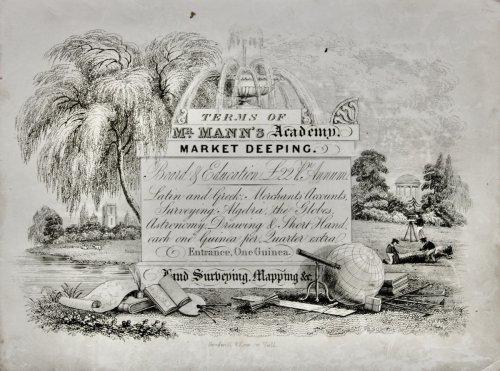 TERMS OF
Mr. MANN'S Academy.
MARKET DEEPING.
Board & Education £22 Pr. Annum.
Latin and Greek; Merchants Accounts,
Surveying Algebra, the Globes,
Astronomy, Drawing & Short Hand,
each one Guinea per Quarter extra.
Entrance, One Guinea.
Land Surveying, Mapping &c.